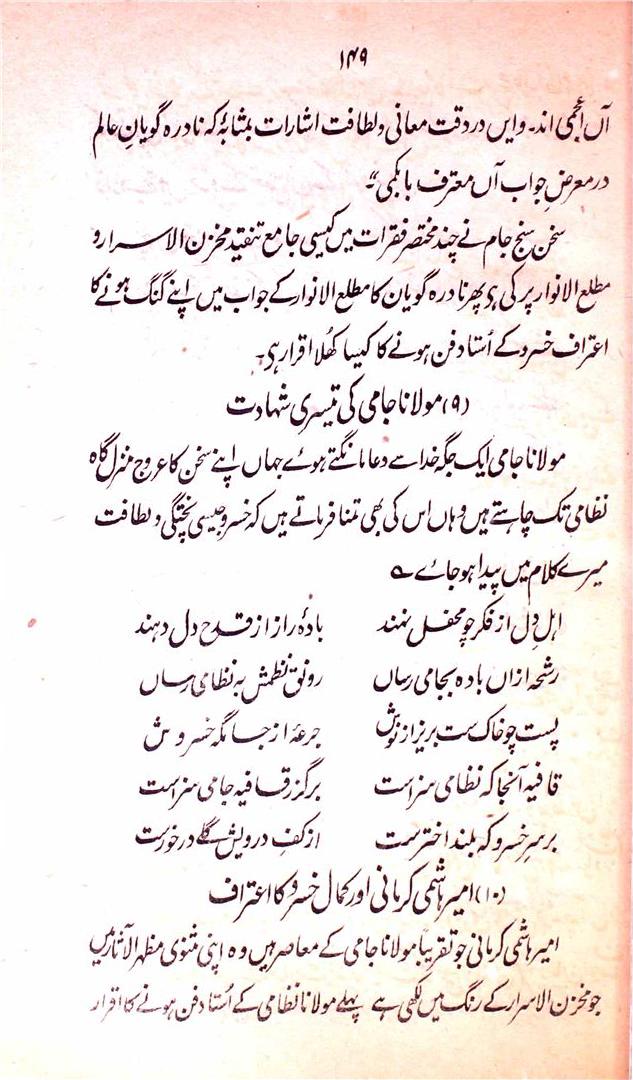 ۱۴۹
آں اعجمی اند۔ وایں در دقت معانی ولطافت اشارات بمثابۂ کہ نادرہ گویانِ عالم
در معرضِ جواب آں معترف بابکمی"۔
سخن سنج جام نے چند مختصر فقرات میں کیسی جامع تنقید مخزن الاسرار و
مطلع الانوار پر کی ہی پھر نادرہ گویان کا مطلع الانوار کے جواب میں اپنے گنگ ہونے کا
اعتراف خسرو کے اُستاد فن ہونے کا کیسا کھُلا اقرار ہی۔
(۹) مولانا جامی کی تیسری شہادت
مولانا جامی ایک جگہ خدا سے دعا مانگتے ہوئے جہاں اپنے سخن کا عروج منزل گاہ
نظامی تک چاہتے ہیں وہاں اس کی بھی تمنا فرماتے ہیں کہ خسرو جیسی پختگی ولطافت
میرے کلام میں پیدا ہو جائے ؎
اہلِ دل از فکر چو محفل نہند بادۂ راز از قدح دل دہند
رشحہ ازاں بادہ بجامی رساں رونق نظمش بہ نظامی رساں
پست چو خاک ست بریز از نوش جرعۂ از جامگہ خسروش
قافیہ آنجا کہ نظامی سزاست برگزر قافیہ جامی سزاست
بر سرِ خسرو کہ بلند اخترست از کفِ درویش گلے در خورست
(۱۰) امیر ہاشمی کرمانی اور کمال خسرو کا اعتراف
امیر ہاشمی کرمانی جو تقریباً مولانا جامی کے معاصر ہیں وہ اپنی مثنوی مظہر الآثار میں
جو مخزن الاسرار کے رنگ میں لکھی ہے پہلے مولانا نظامی کے اُستاد فن ہونے کا اقرار